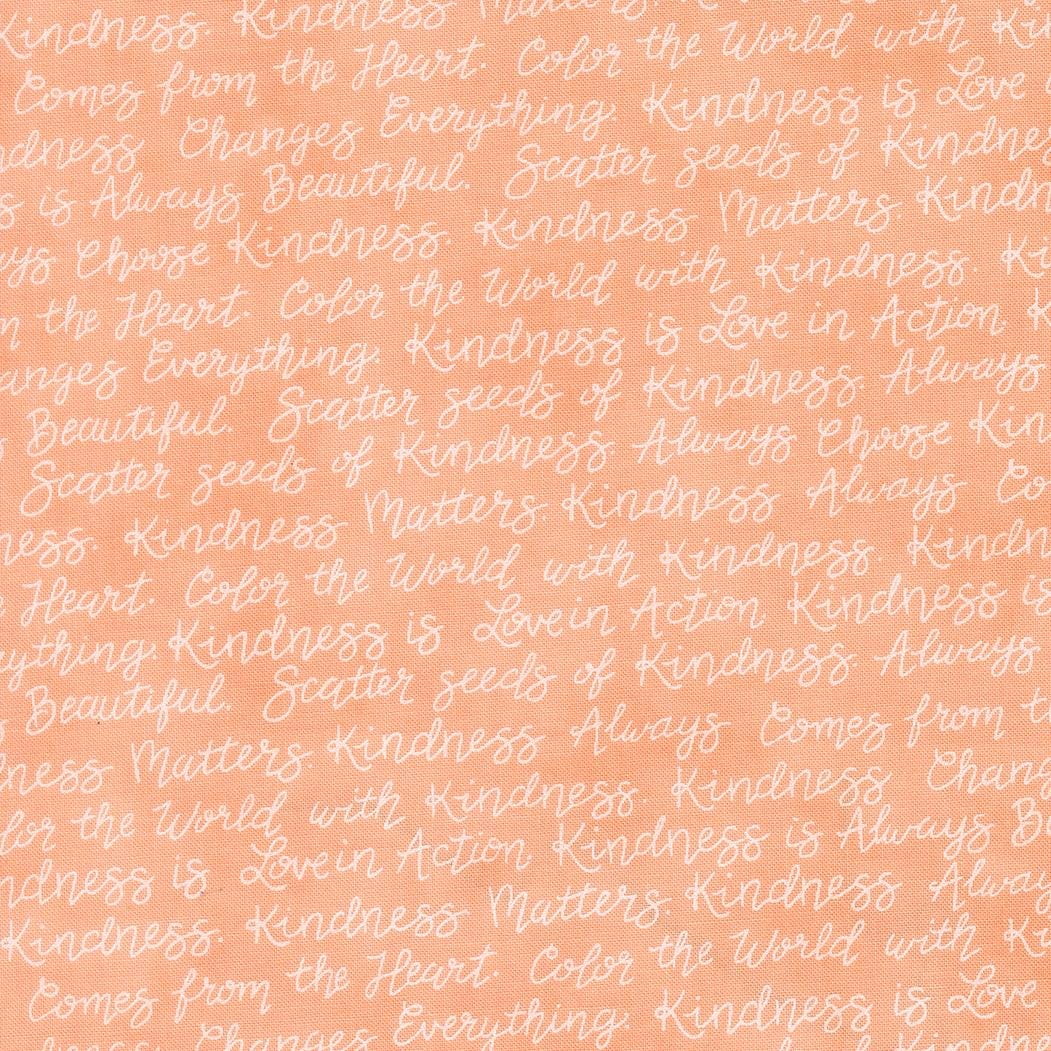 Kindness. Kindness Matters. Kindness
Comes from the Heart. Color the World with Ki
ndness Changes Everything. Kindness is Love
s is Always Beautiful. Scatter seeds of Kindness
ays Choose Kindness. Kindness Matters. Kindn
m the Heart. Color the World with Kindness. Ki
anges Everything. Kindness is Love in Action. K
s Beautiful. Scatter seeds of Kindness. Always
Scatter seeds of Kindness. Always Choose Kin
ness. Kindness Matters. Kindness Always Co
e Heart. Color the World with Kindness. Kindn
rything. Kindness is Love in Action. Kindness is
s Beautiful. Scatter seeds of Kindness. Always
dness Matters. Kindness Always Comes from t
lor the World with Kindness. Kindness Chang
ndness is Love in Action. Kindness is Always B
Kindness. Kindness Matters. Kindness Alway
Comes from the Heart. Color the World with Ki
dness Changes Everything. Kindness is Love